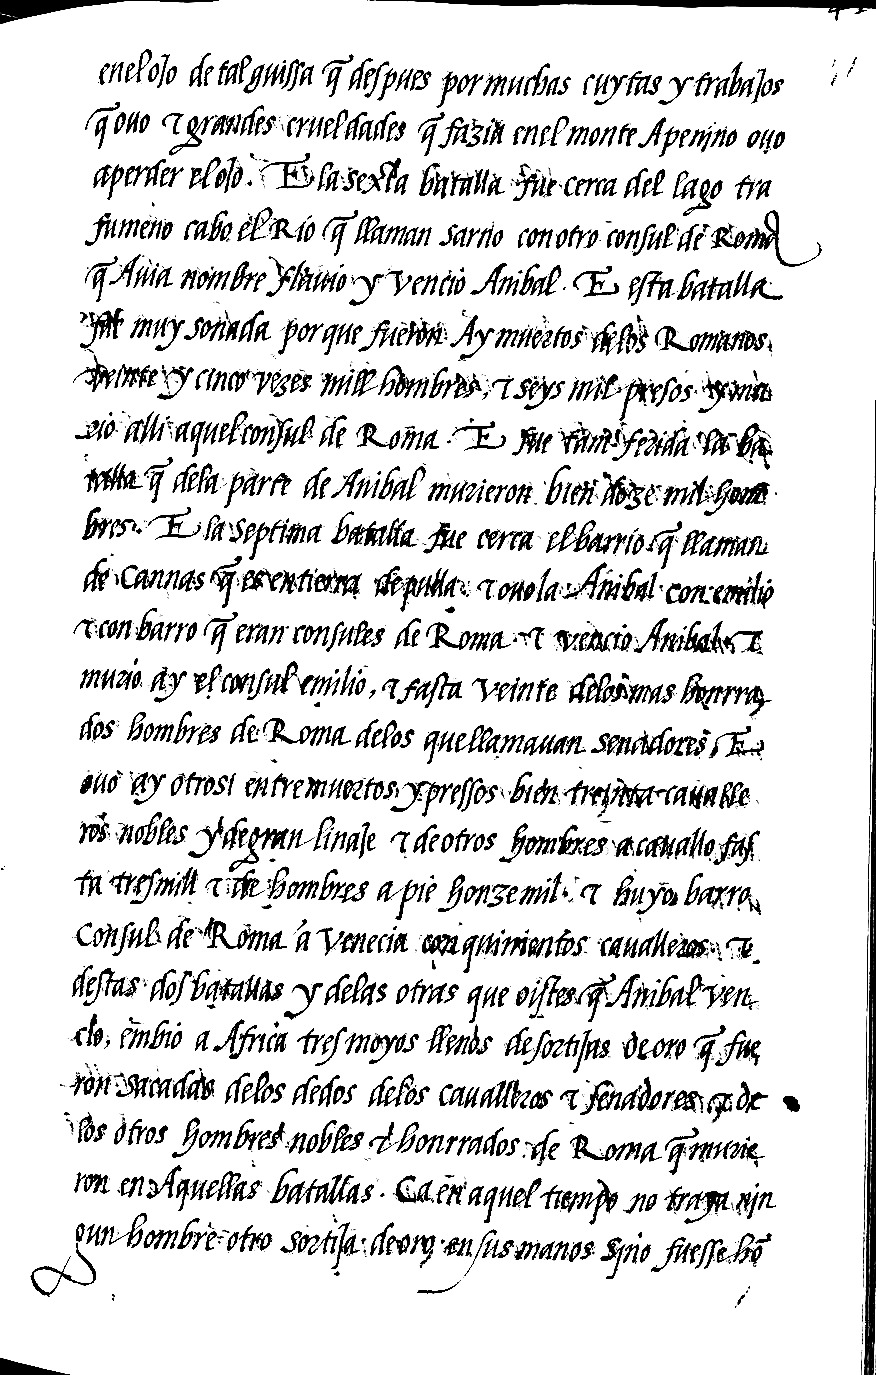 enel ojo de tal guissa q̃ despues por muchas cuytas y trabajos
q̃ ovo & grandes crueldades q̃ fazia enel monte Apenino ovo
aperder el ojo. E la sexta batalla fue cerca del lago tra
sumeno cabo el Rio q̃ llaman sarno con otro consul de Roma
q̃ Avia nombre flavio y Vencio Anibal. E esta batalla
fue muy sonada porque fueron Ay muertos delos Romanos
veinte y cinco vezes mill hombres, & seys mil presos y mu
rio alli aquel consul de Roma. E fue tam ferida la ba
talla q̃ dela parte de Anibal murieron bien doze mil hom
bres. E la septima batalla fue cerca el barrio q̃ llaman
de Cannas q̃ es en tierra de pulla & ovo la Anibal con emilio
& con barro q̃ eran consules de Roma & vencio Anibal &
murio ay el consul emilio, & fasta veinte delos mas honrra
dos hombres de Roma delos que llamavan senadores, E
ovo ay otrosi entre muertos y pressos bien treynta cavalle
ros nobles y de gran linaje & de otros hombres a cavallo fas
ta tres mill & de hombres a pie honze mil. & huyo barro
Consul de Roma a Venecia con quinientos cavalleros &
destas dos batallas y delas otras que oistes q̃ Anibal ven
cio, embio a Africa tres moyos llenos de sortijas de oro q̃ fue
ron sacadas delos dedos delos cavalleros & senadores & de
los otros hombres nobles & honrrados de Roma q̃ murie
ron en Aquellas batallas. Ca en aquel tiempo no traya nin
gun hombre otro sortija de oro en sus manos sino fuesse hõ